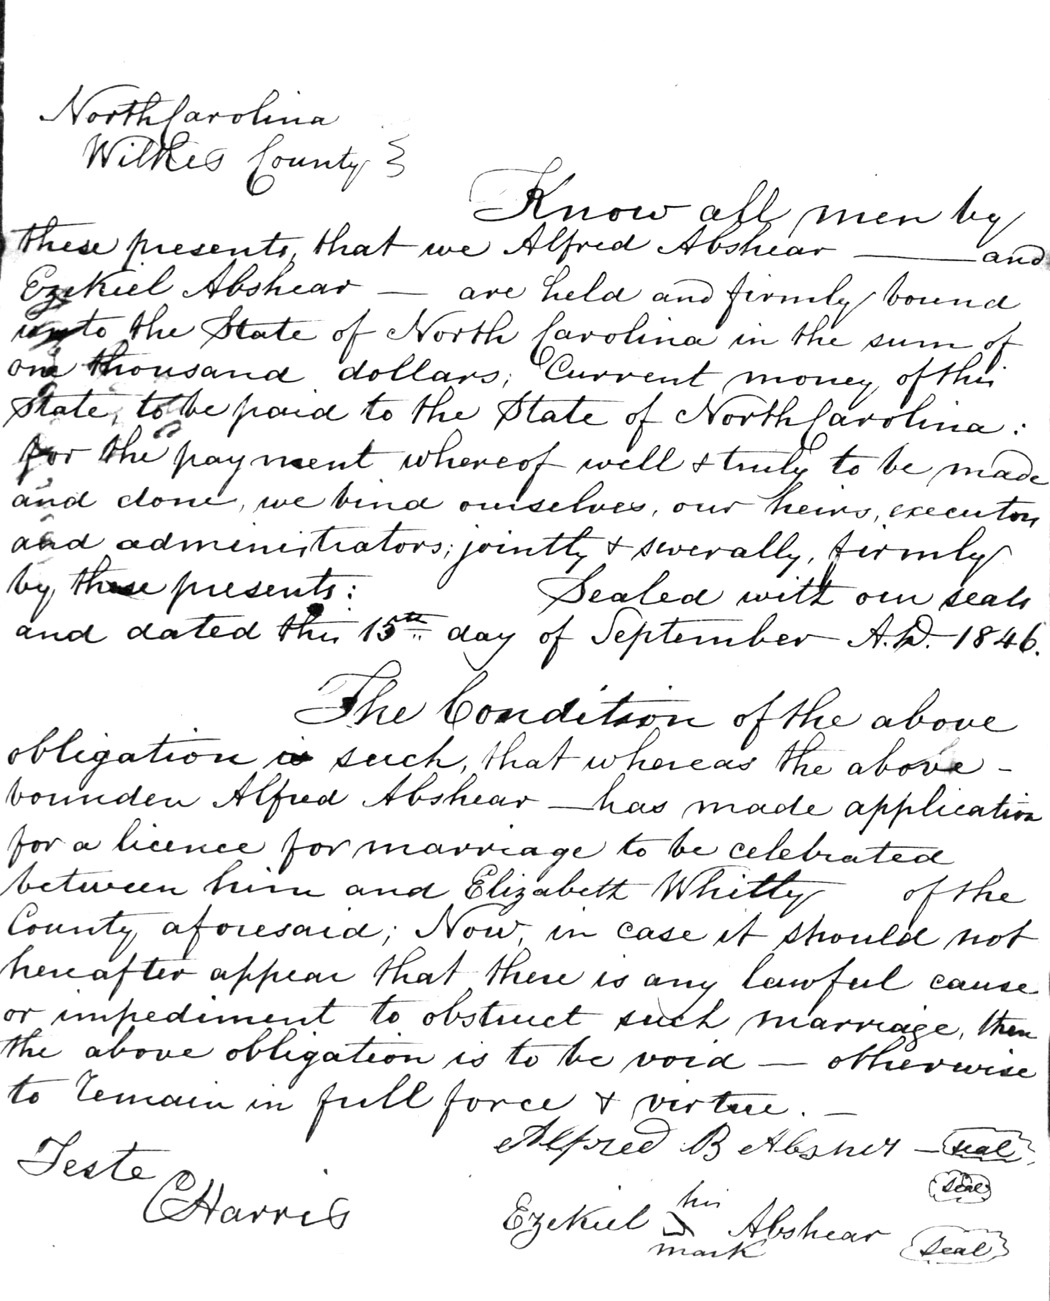 North Carolina
Wilkes County }
Know all men by
these presents, that we Alfred Abshear ——— and
Ezekiel Abshear — are held and firmly bound
unto the State of North Carolina in the sum of
one thousand dollars, Current money of this
State, to be paid to the State of North Carolina:
for the payment whereof well & truly to be made
and done, we bind ourselves, our heirs, executors
and administrators, jointly & severally, firmly
by these presents: Sealed with our seals
and dated this 15th day of September A.D. 1846.
The Condition of the above
obligation is such, that whereas the above-
bounden Alfred Abshear — has made application
for a licence for marriage to be celebrated
between him and Elizabeth Whitly of the
County aforesaid; Now, in case it should not
hereafter appear that there is any lawful cause
or impediment to obstruct such marriage, then
the above obligation is to be void — otherwise
to remain in full force & virtue. —
Alfred B Absher — seal
Teste
seal
C Harris
his
Ezekiel Abshear seal
mark